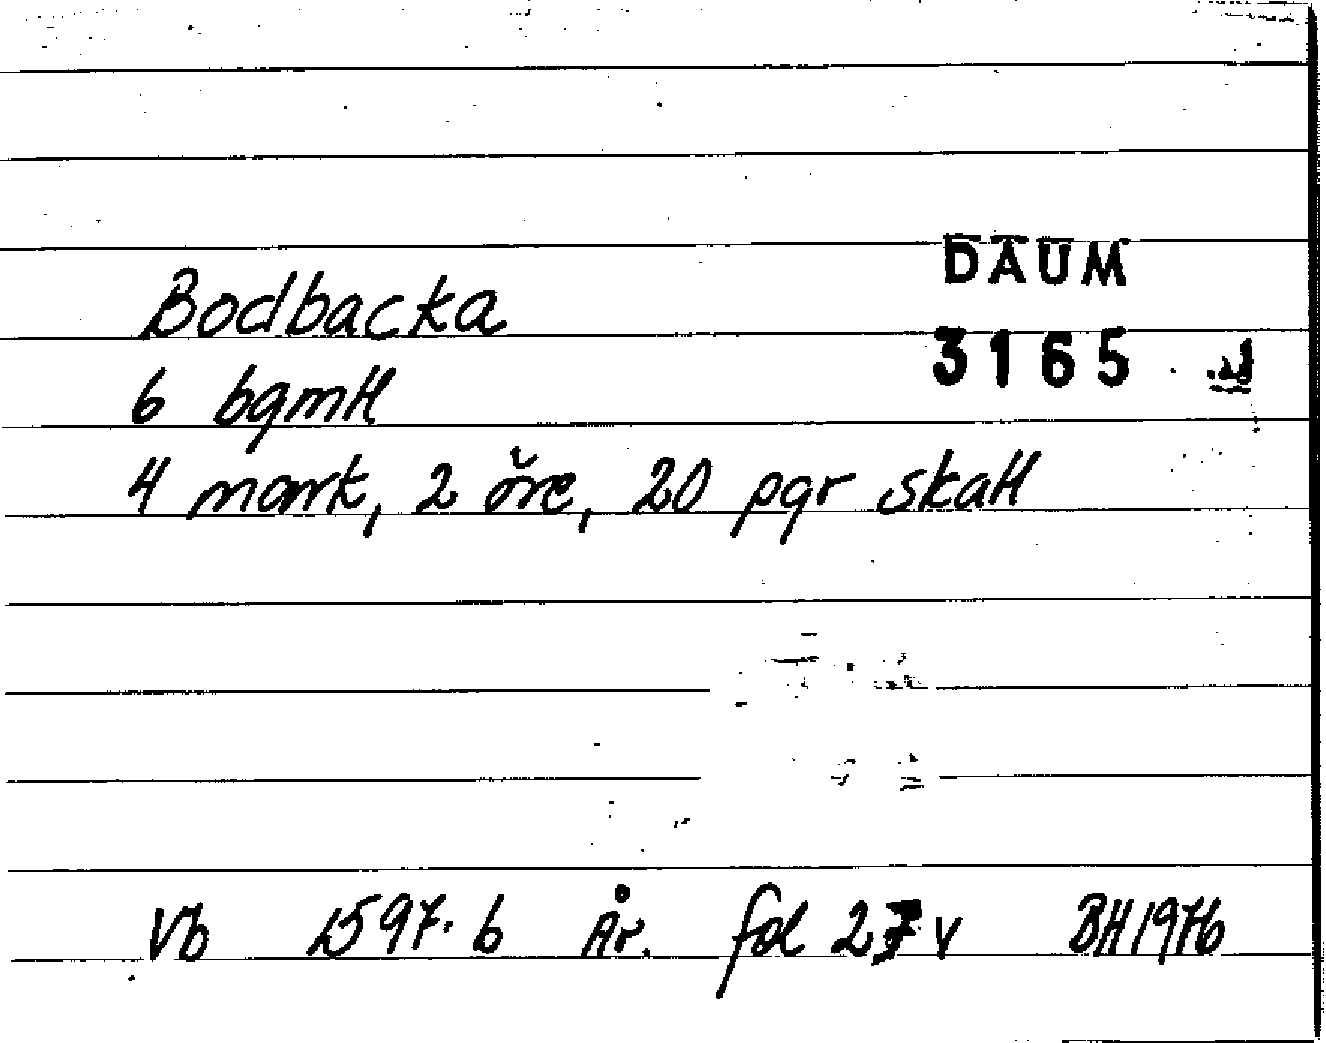 DAUM
Bodbacka
3165
6 bgmtl
4 mark, 2 öre, 20 pgr skatt
Vb 1597.6 År. fol 27 v BH 1976